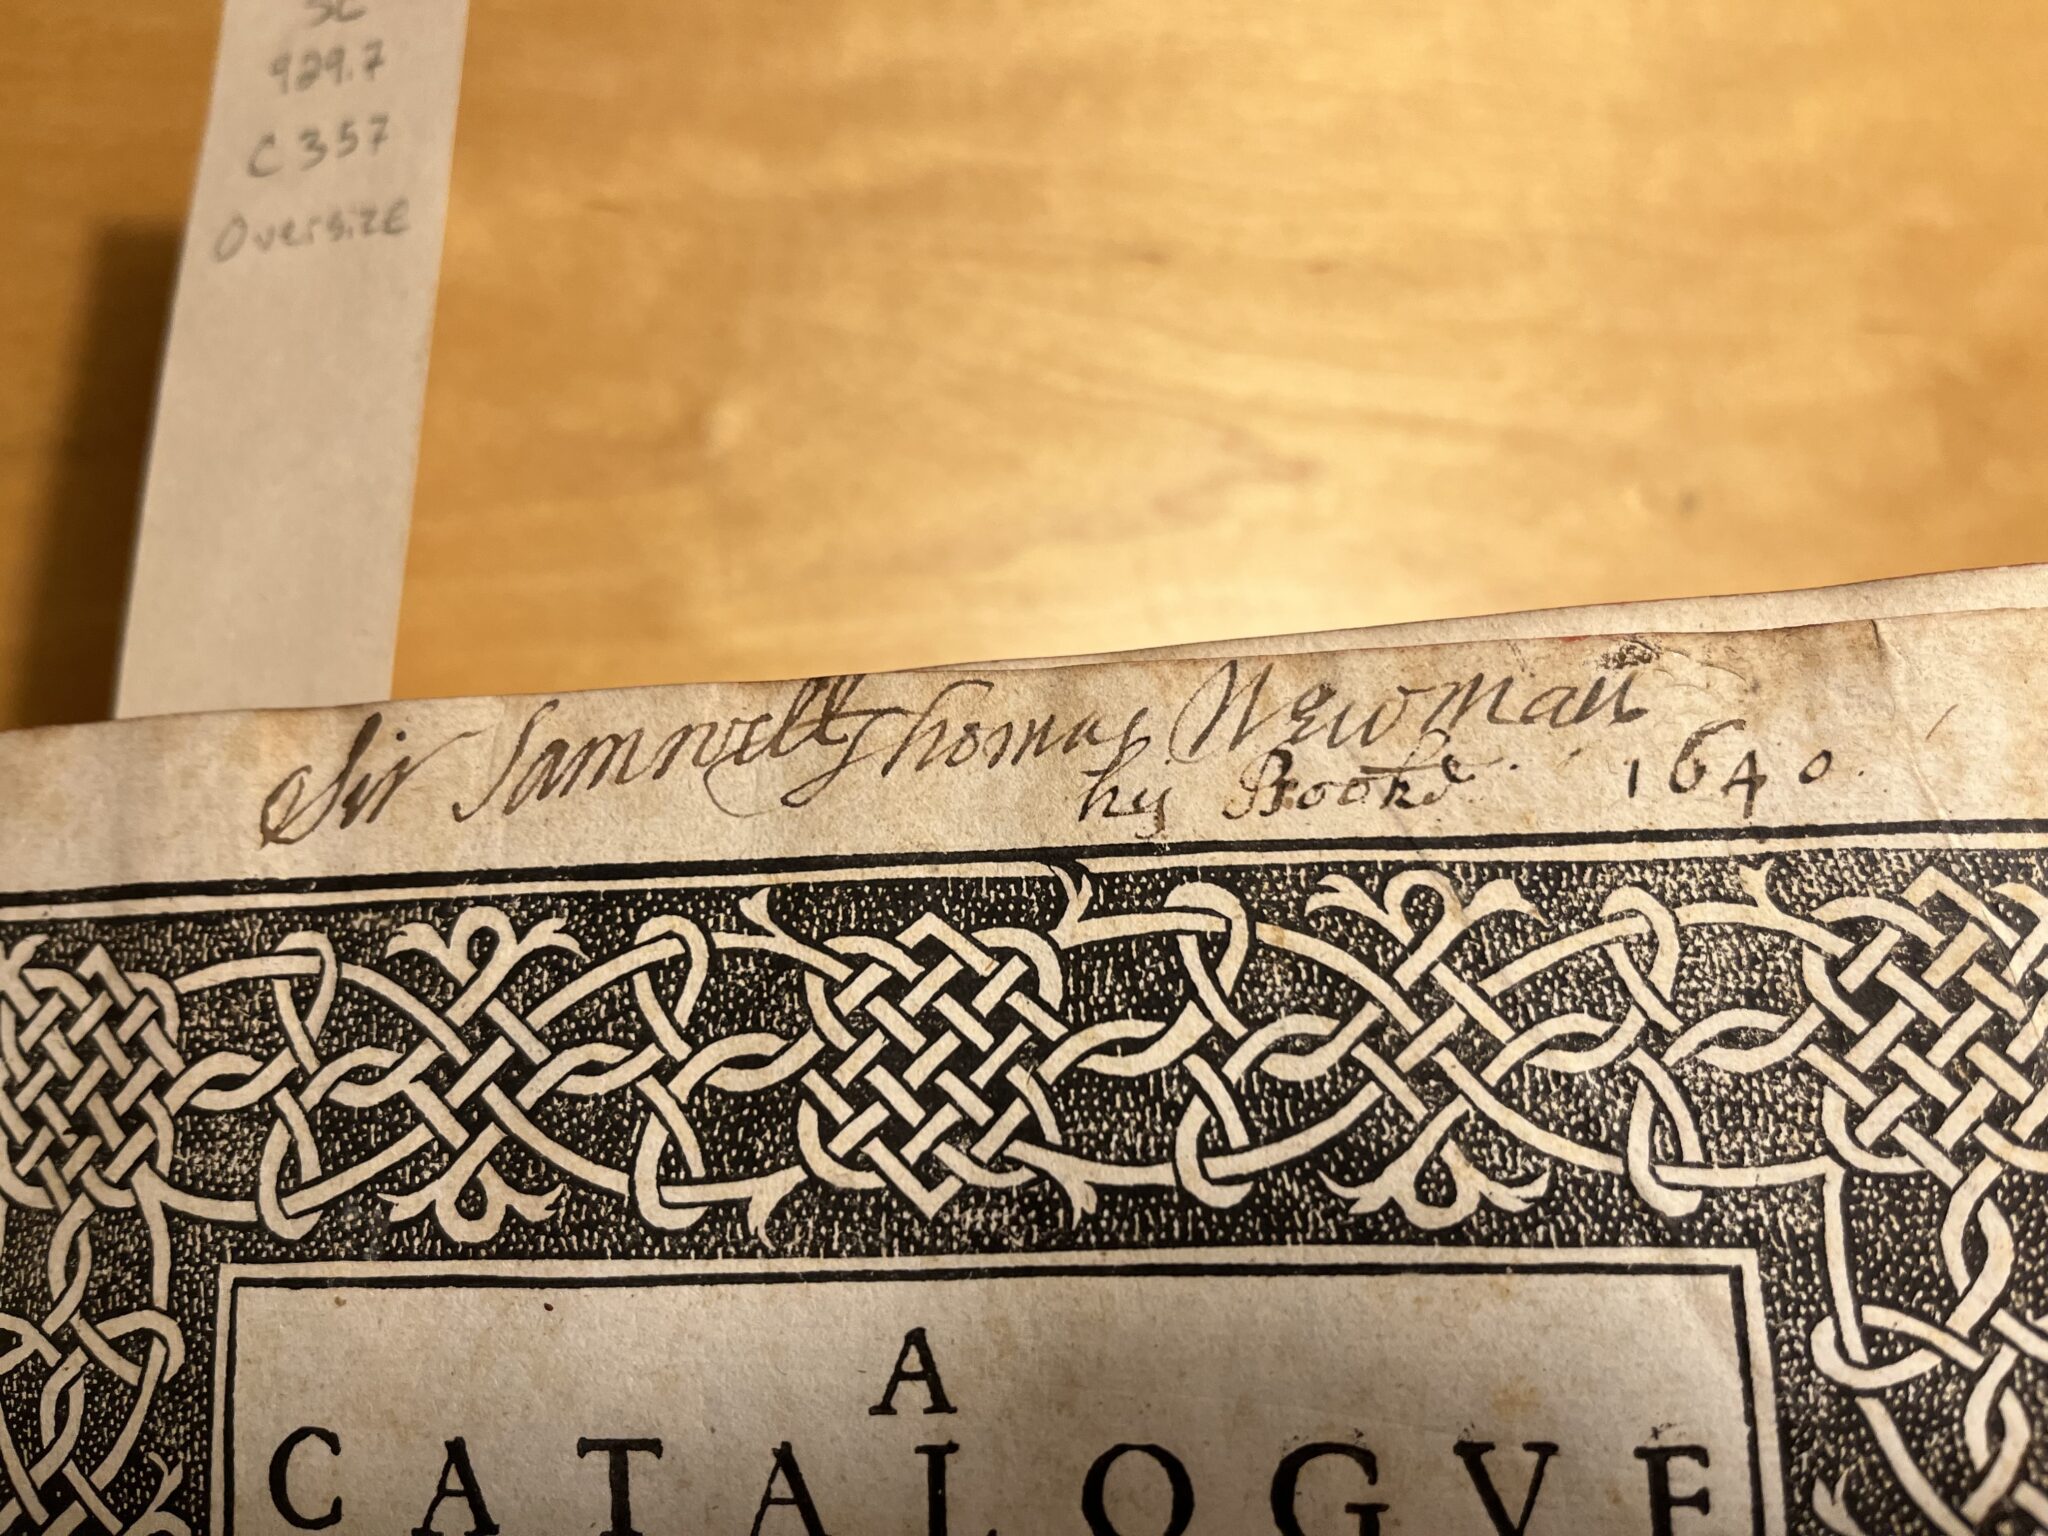 SC
929.7
C357
Oversize
Sir Samwell Thomas Newman
hij Booke 1640.
A
CATALOGVE